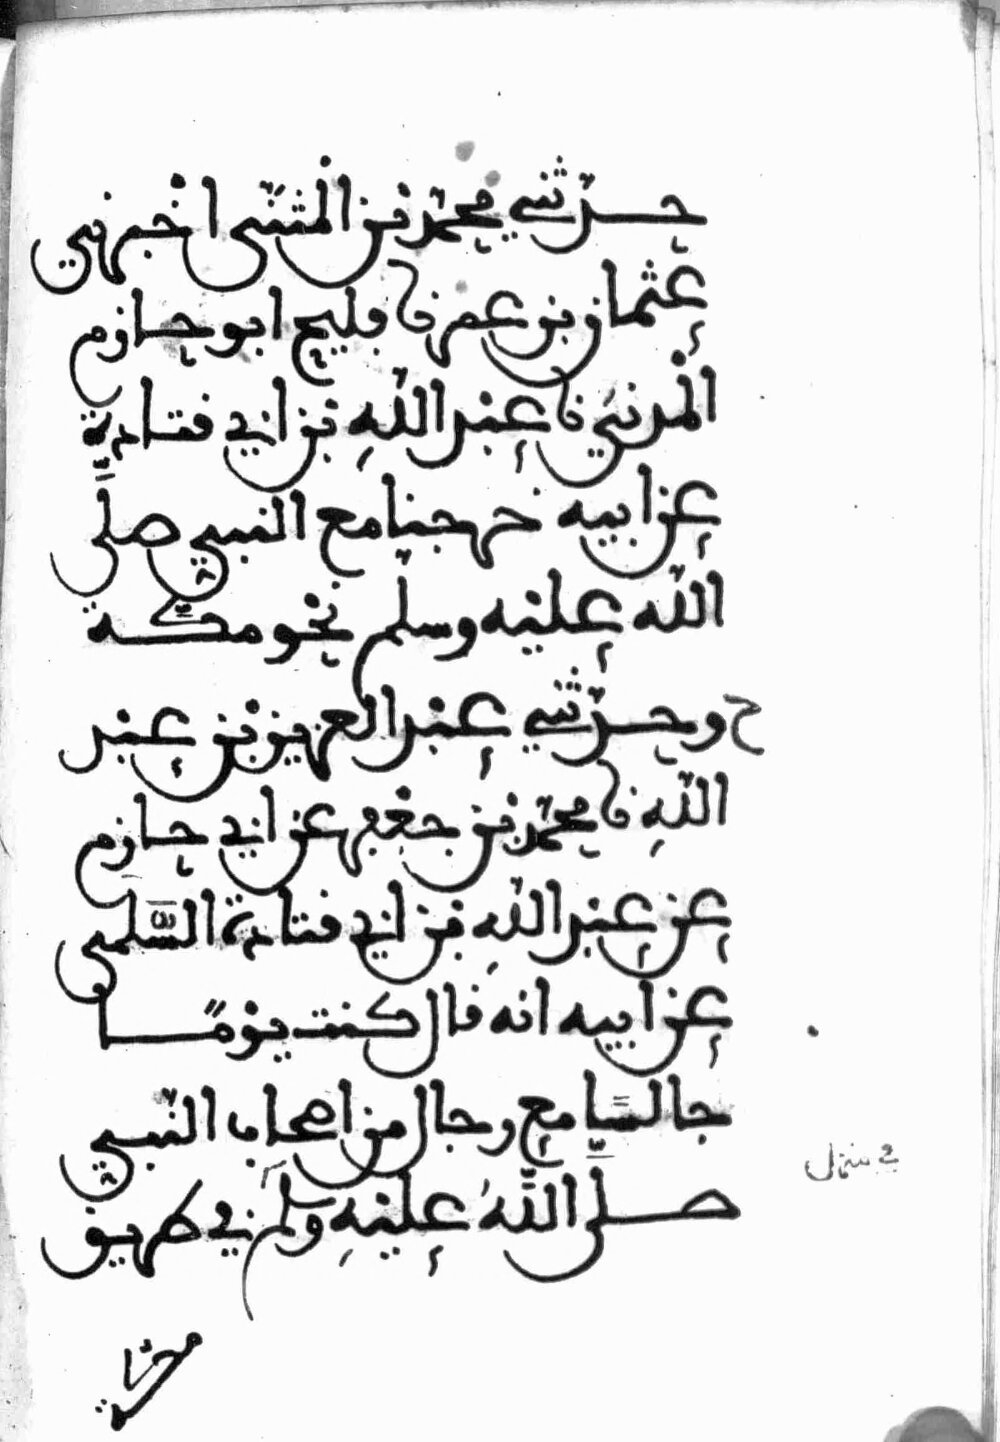 حدثني محمد بن المثنى اخبرني
عثمان بن عمر نا فليح ابو حازم
المدني نا عبد الله بن ابي قتادة
عن ابيه خرجنا مع النبي صلى
الله عليه وسلم نحو مكة
ح وحدثني عبد العزيز بن عبد
الله نا محمد بن جعفر عن ابي حازم
عن عبد الله بن ابي قتادة السلمي
عن ابيه انه قال كنت يوما
جالسا مع رجال من اصحاب النبي
في منزل
صلى الله عليه وسلم في طريق
مكة